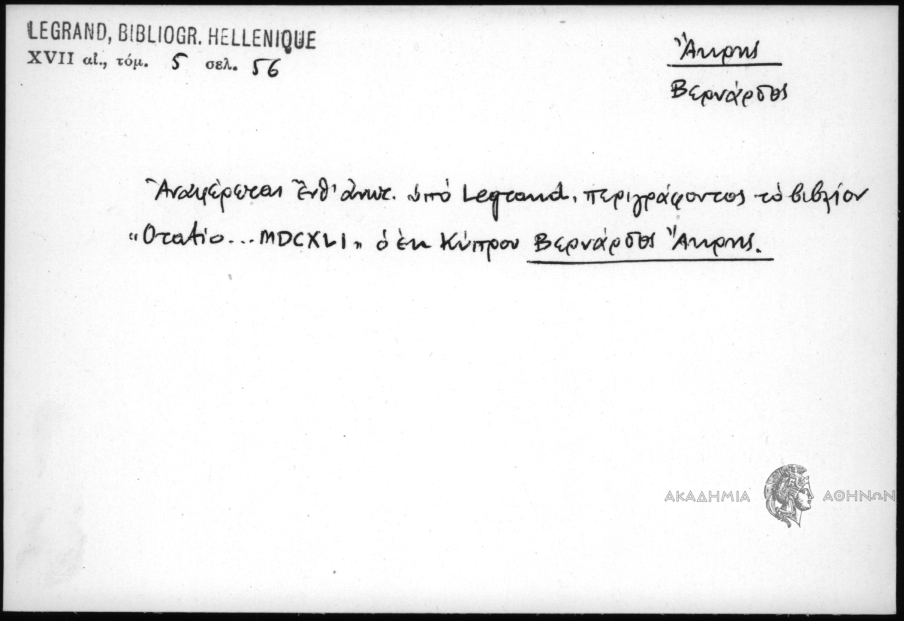 LEGRAND, BIBLIOGR. HELLENIQUE
XVII αἰ., τόμ. 5 σελ. 56
Ἄκρης
Βερνάρδος
Ἀναφέρεται ἔνθ' ἀνωτ. ὑπό Legrand, περιγράφοντος τὸ βιβλίον
"Oratio... MDCXLI" ὁ ἐκ Κύπρου Βερνάρδος Ἄκρης.
ΑΚΑΔΗΜΙΑ ΑΘΗΝΩΝ